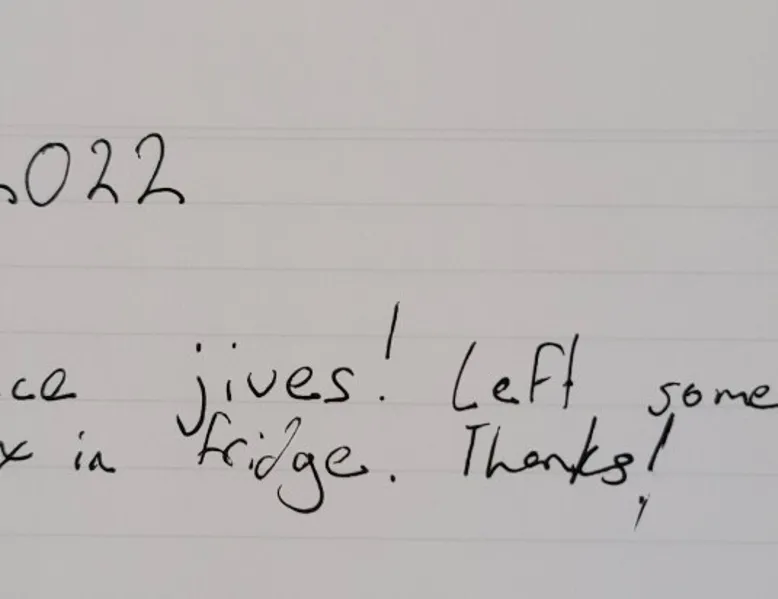 2022
ce jives! Left some
x in fridge. Thanks!